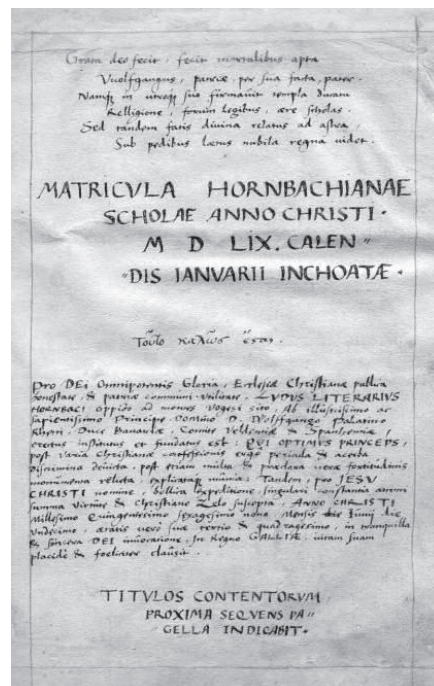 Grata deo fecit, fecit mortalibus apta
Vuolfgangus, patriæ, per sua facta, pater.
Namq; in utroq; suo firmauit templa ducatu
Relligione, forum legibus, ære scholas.
Sed tandem fatis divina relatus ad astra
Sub pedibus lætus nubila regna videt.
MATRICVLA HORNBACHIANAE
SCHOLAE ANNO CHRISTI.
M D LIX. CALEN"
"DIS IANVARII INCHOATÆ.
καλῶς
Pro DEi Omnipotentis Gloria, Ecclesiæ Christianæ publica
honestate, & patriæ communi utilitate, LVDVS LITERARIVS
HORNBACI oppido ad montes Vogesi sito, Ab illustrissimo ac
sapientissimo Principe Domino D. Wolffgango Palatino
Rheni, Duce Bavariæ, Comite Veldentiæ & Spanhemiæ,
erectus institutus et fundatus est: QVI OPTIMVS PRINCEPS,
post varia Christianæ confessionis ergo pericula & acerba
discrimina devicta, post etiam multa & præclara veræ fortitudinis
monumenta relicta, Tandem, pro JESV
CHRISTI nomine, bellica expeditione, singulari constantia animi
summa virtute & Christiano Zelo suscepta, Anno CHRISTI
Millesimo Quingentesimo sexagesimo nono, Mensis Iunij die
undecimo, ætatis vero suæ tertio & quadragesimo, in tranquilla
& sincera DEI invocatione, In Regno GALLIÆ, vitam suam
placide & foeliciter clausit.
TITVLOS CONTENTORVM
PROXIMA SEQVENS PA"
GELLA INDICABIT.